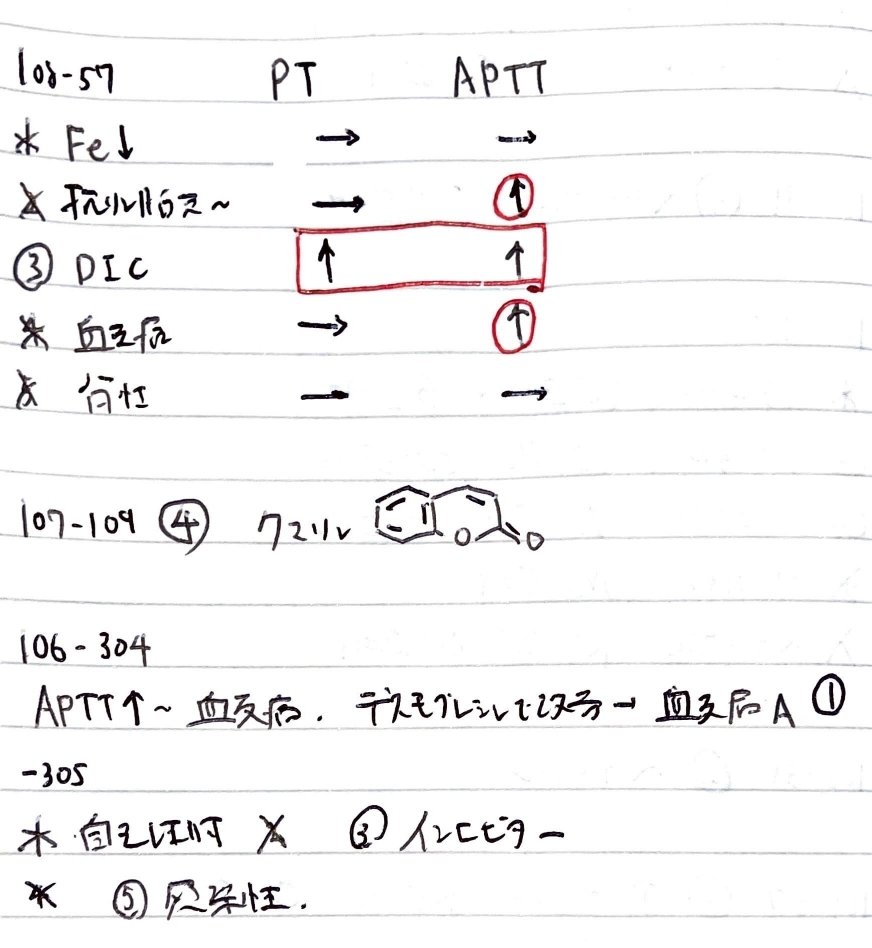 108-57 PT APTT
Fe↓ → →
抗リン脂質~ → ↑
③ DIC ↑ ↑
血友病 → ↑
→ →
107-109 ④ クマリン O O
106-304
APTT↑~ 血友病. デスモプレシンで → 血友病A ①
-305
自己注射 ③ インヒビター
⑤ 感染性.